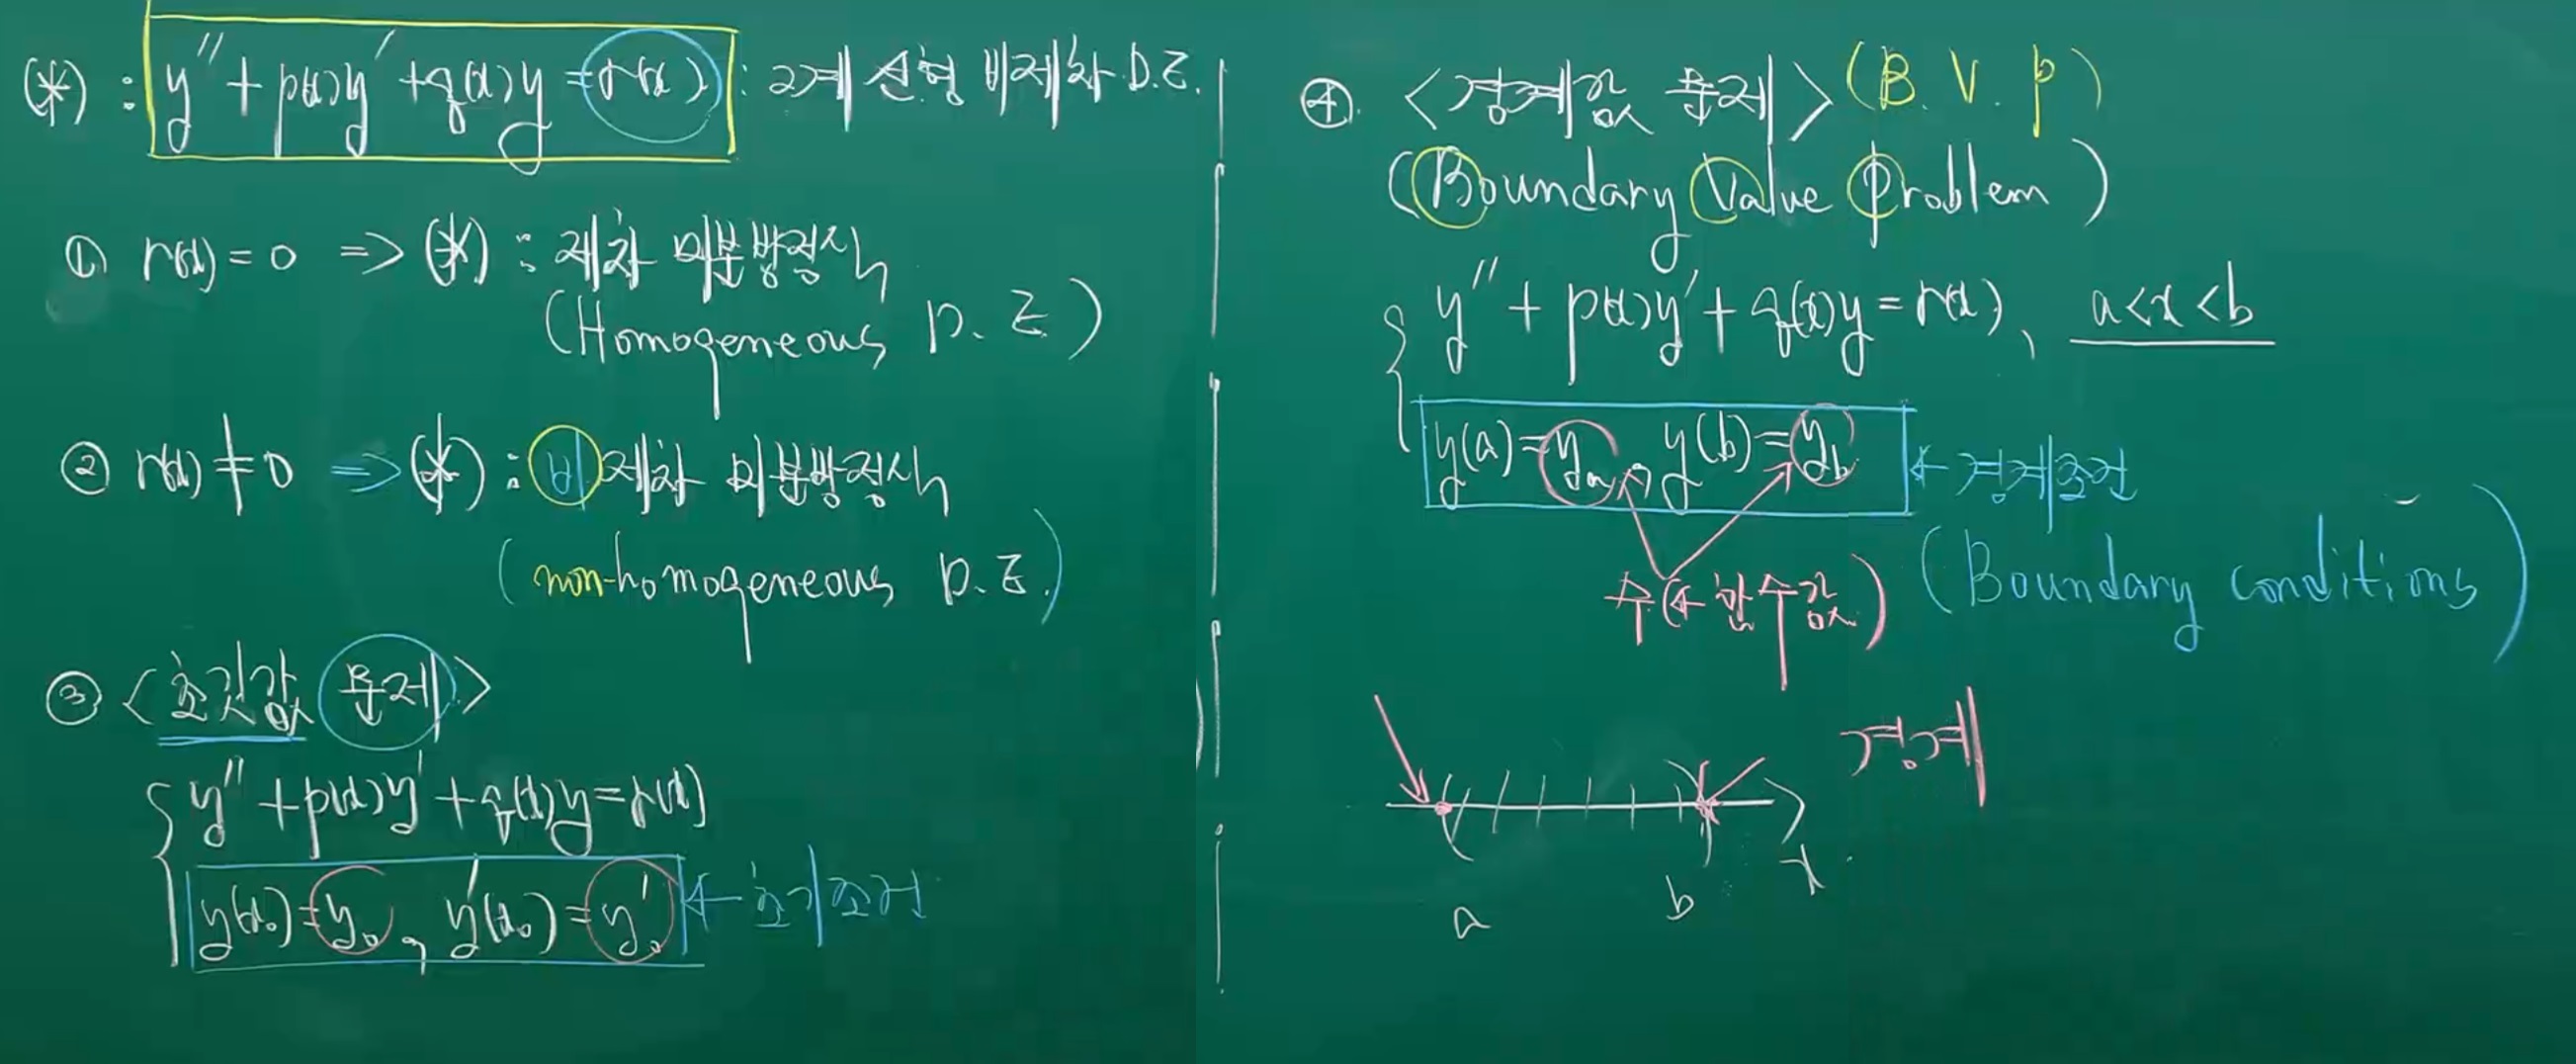 (*) : y'' + p(x)y' + q(x)y = r(x) : 2계 선형 비제차 D.E.
① r(x) = 0 => (*) : 제차 미분방정식
(Homogeneous D. E.)
② r(x) ≠ 0 => (*) : 비제차 미분방정식
(non-homogeneous D. E.)
③ <초깃값 문제>
y'' + p(x)y' + q(x)y = r(x)
y(x₀) = y₀ , y'(x₀) = y₀' ← 초기조건
④ <경계값 문제> (B. V. P)
(Boundary Value Problem)
y'' + p(x)y' + q(x)y = r(x), a<x<b
y(a) = yₐ , y(b) = y_b ← 경계조건
(Boundary conditions)
수(← 함수값)
경계
a b x